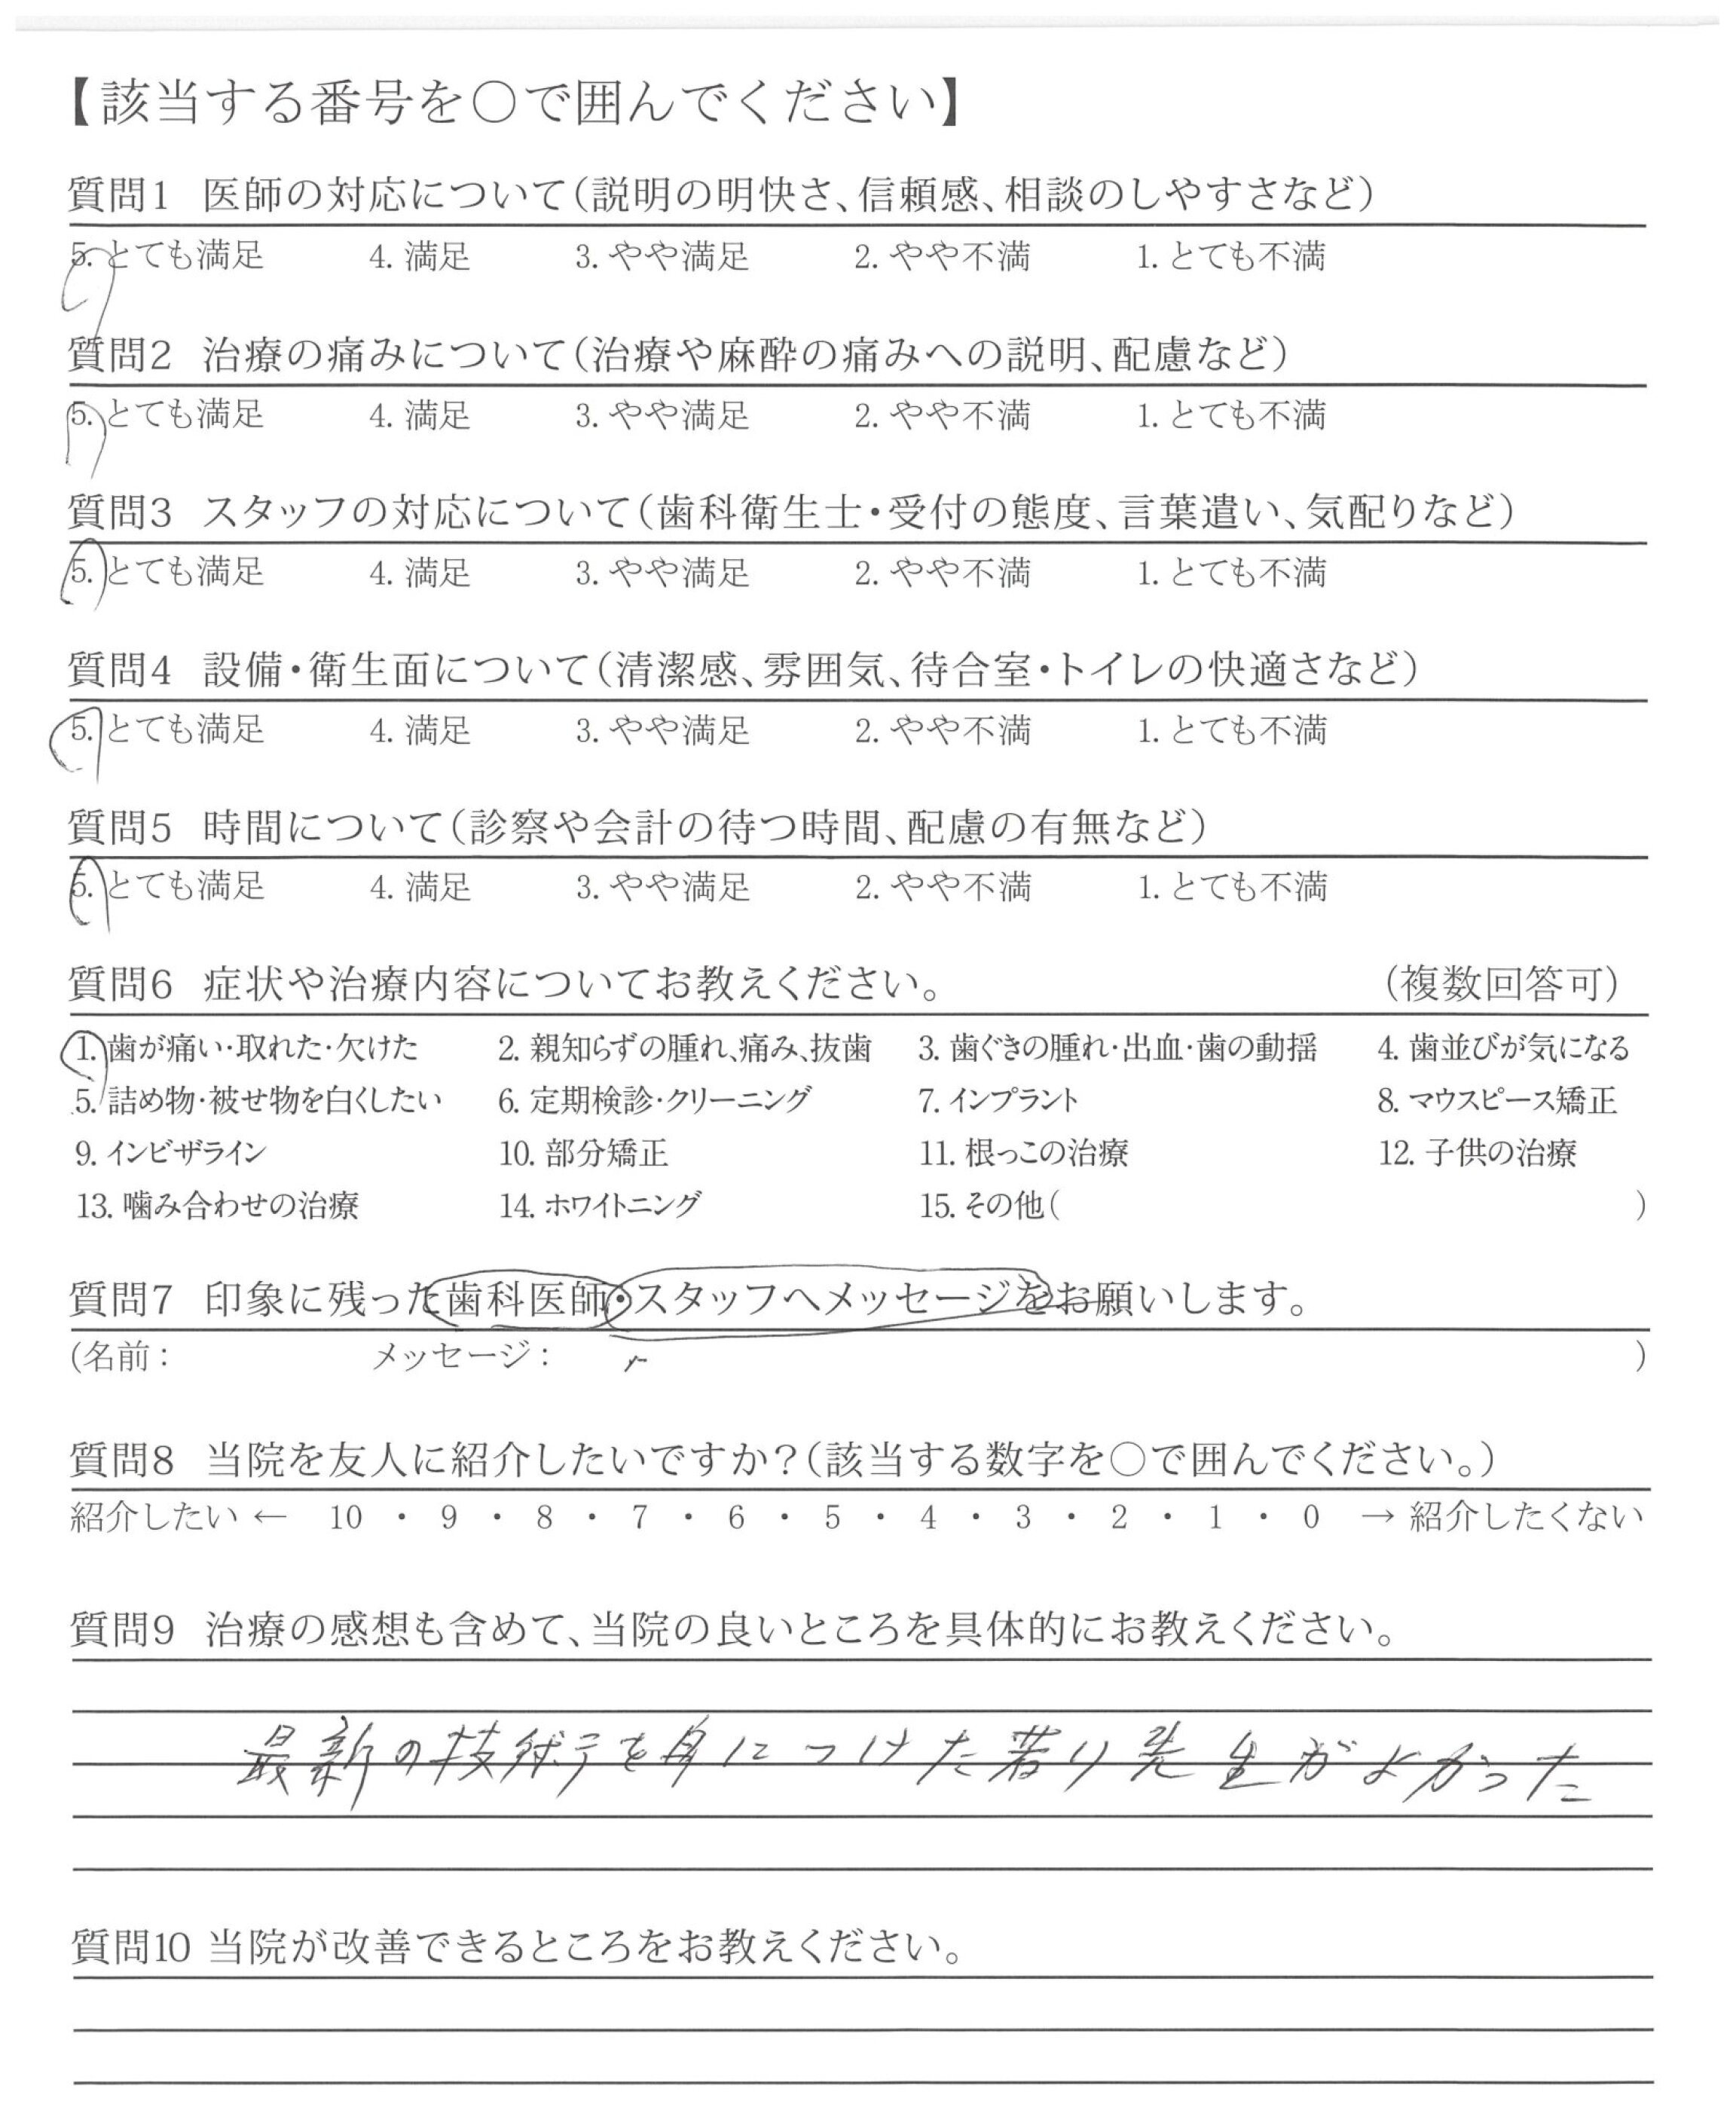 【該当する番号を○で囲んでください】
質問1 医師の対応について(説明の明快さ、信頼感、相談のしやすさなど)
5. とても満足 4. 満足 3. やや満足 2. やや不満 1. とても不満
質問2 治療の痛みについて(治療や麻酔の痛みへの説明、配慮など)
5. とても満足 4. 満足 3. やや満足 2. やや不満 1. とても不満
質問3 スタッフの対応について(歯科衛生士・受付の態度、言葉遣い、気配りなど)
5. とても満足 4. 満足 3. やや満足 2. やや不満 1. とても不満
質問4 設備・衛生面について(清潔感、雰囲気、待合室・トイレの快適さなど)
5. とても満足 4. 満足 3. やや満足 2. やや不満 1. とても不満
質問5 時間について(診察や会計の待つ時間、配慮の有無など)
5. とても満足 4. 満足 3. やや満足 2. やや不満 1. とても不満
質問6 症状や治療内容についてお教えください。 (複数回答可)
1. 歯が痛い・取れた・欠けた 2. 親知らずの腫れ、痛み、抜歯 3. 歯ぐきの腫れ・出血・歯の動揺 4. 歯並びが気になる
5. 詰め物・被せ物を白くしたい 6. 定期検診・クリーニング 7. インプラント 8. マウスピース矯正
9. インビザライン 10. 部分矯正 11. 根っこの治療 12. 子供の治療
13. 噛み合わせの治療 14. ホワイトニング 15. その他( )
質問7 印象に残った歯科医師・スタッフへメッセージをお願いします。
(名前: メッセージ: )
質問8 当院を友人に紹介したいですか?(該当する数字を○で囲んでください。)
紹介したい ← 10 ・ 9 ・ 8 ・ 7 ・ 6 ・ 5 ・ 4 ・ 3 ・ 2 ・ 1 ・ 0 → 紹介したくない
質問9 治療の感想も含めて、当院の良いところを具体的にお教えください。
最新の技術を身につけた若い先生がよかった
質問10 当院が改善できるところをお教えください。